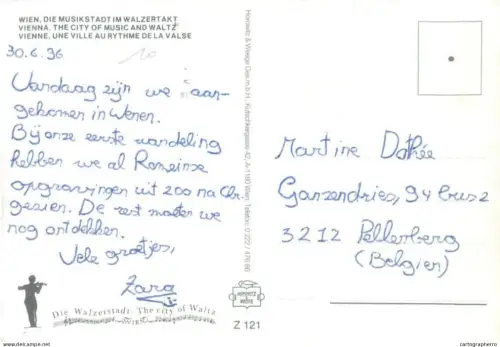 WIEN, DIE MUSIKSTADT IM WALZERTAKT
VIENNA, THE CITY OF MUSIC AND WALTZ
VIENNE, UNE VILLE AU RYTHME DE LA VALSE
30.6.96
Vandaag zijn we aan-
gekomen in Wenen.
Bij onze eerste wandeling
hebben we al Romeinse
opgravingen uit 200 na Chr.
gezien. De rest moeten we
nog ontdekken.
Vele groetjes,
Zara
Die Walzerstadt The city of Waltz
WIEN
Horowitz & Weege Ges.m.b.H., Kutschkergasse 42, A-1180 Wien, Telefon
HOROWITZ
& WEEGE
Z 121
Martine Dothée
Ganzendries, 94 bus 2
3212 Pellenberg
(Belgien)
cartographero